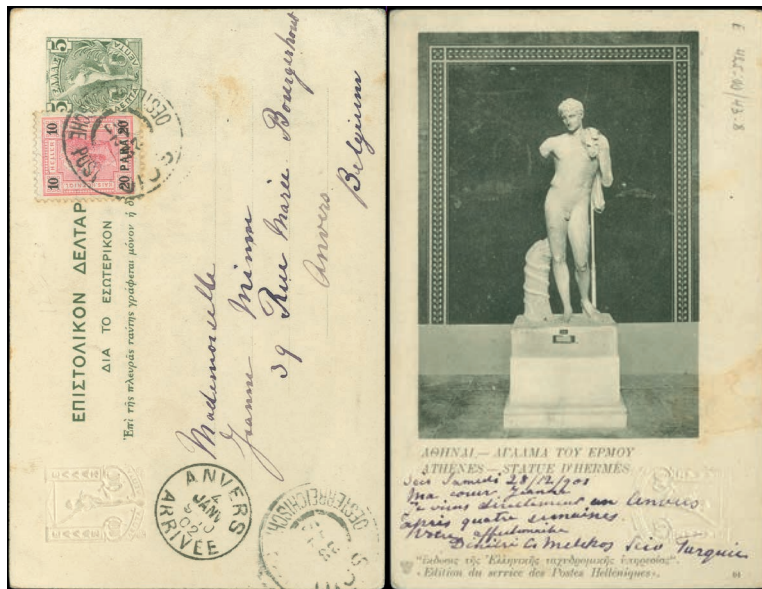 5 ΕΛΛΑΣ 5
ΛΕΠΤΑ
10 10
20 PARA 20
SCIO
ΕΠΙΣΤΟΛΙΚΟΝ ΔΕΛΤΑΡ
ΔΙΑ ΤΟ ΕΣΩΤΕΡΙΚΟΝ
Ἐπὶ τῆς πλευρᾶς ταύτης γράφεται μόνον ἡ δ
Mademoiselle
Jeanne Minne
39 Rue Marie Bourgerhout
Anvers
Belgium
ΕΛΛΑΣ
ANVERS
JANV
ARRIVÉE
OESTERREICHISCH
ΑΘΗΝΑΙ.— ΑΓΑΛΜΑ ΤΟΥ ΕΡΜΟΥ
ATHÈNES — STATUE D'HERMÈS
Scio Samedi 28/12/901
Ma coeur Jeanne
Je viens directement un Anvers
après quatre semaines.
Votre affectionaite
Dimitri Cs Melekos Scio Turquie
"Ἔκδοσις τῆς Ἑλληνικῆς ταχυδρομικῆς ὑπηρεσίας"
«Edition du service des Postes Helléniques».